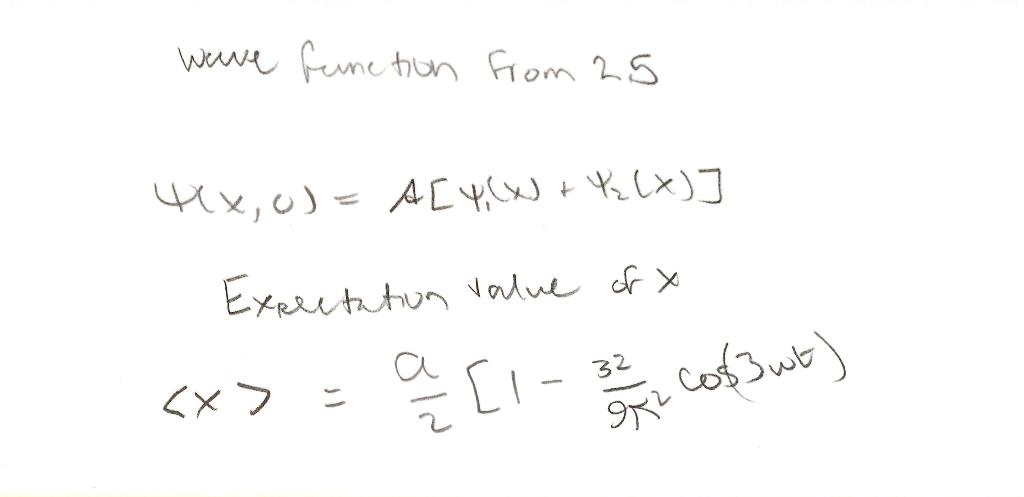 Wave function from 2.5
Ψ(x,0) = A[Ψ₁(x) + Ψ₂(x)]
Expectation value of x
<x> = a/2 [1 - 32/9π² cos(3ωt)